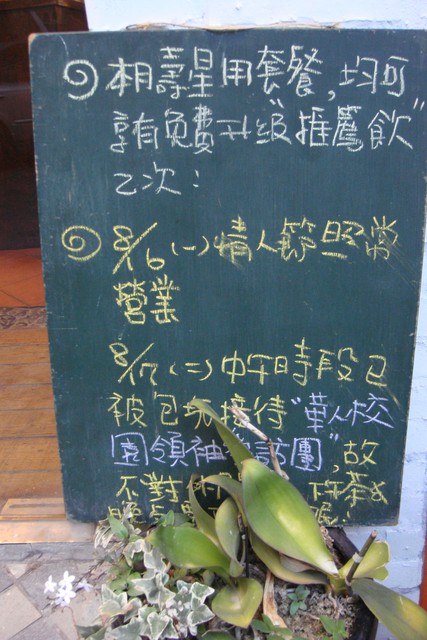 相壽星用套餐,均可
享有免費升級"推薦飲"
乙次:
8/16(一)情人節照常
營業
8/17(二)中午時段已
被包場接待"華人校
園領袖訪團",故
不對 下午茶&